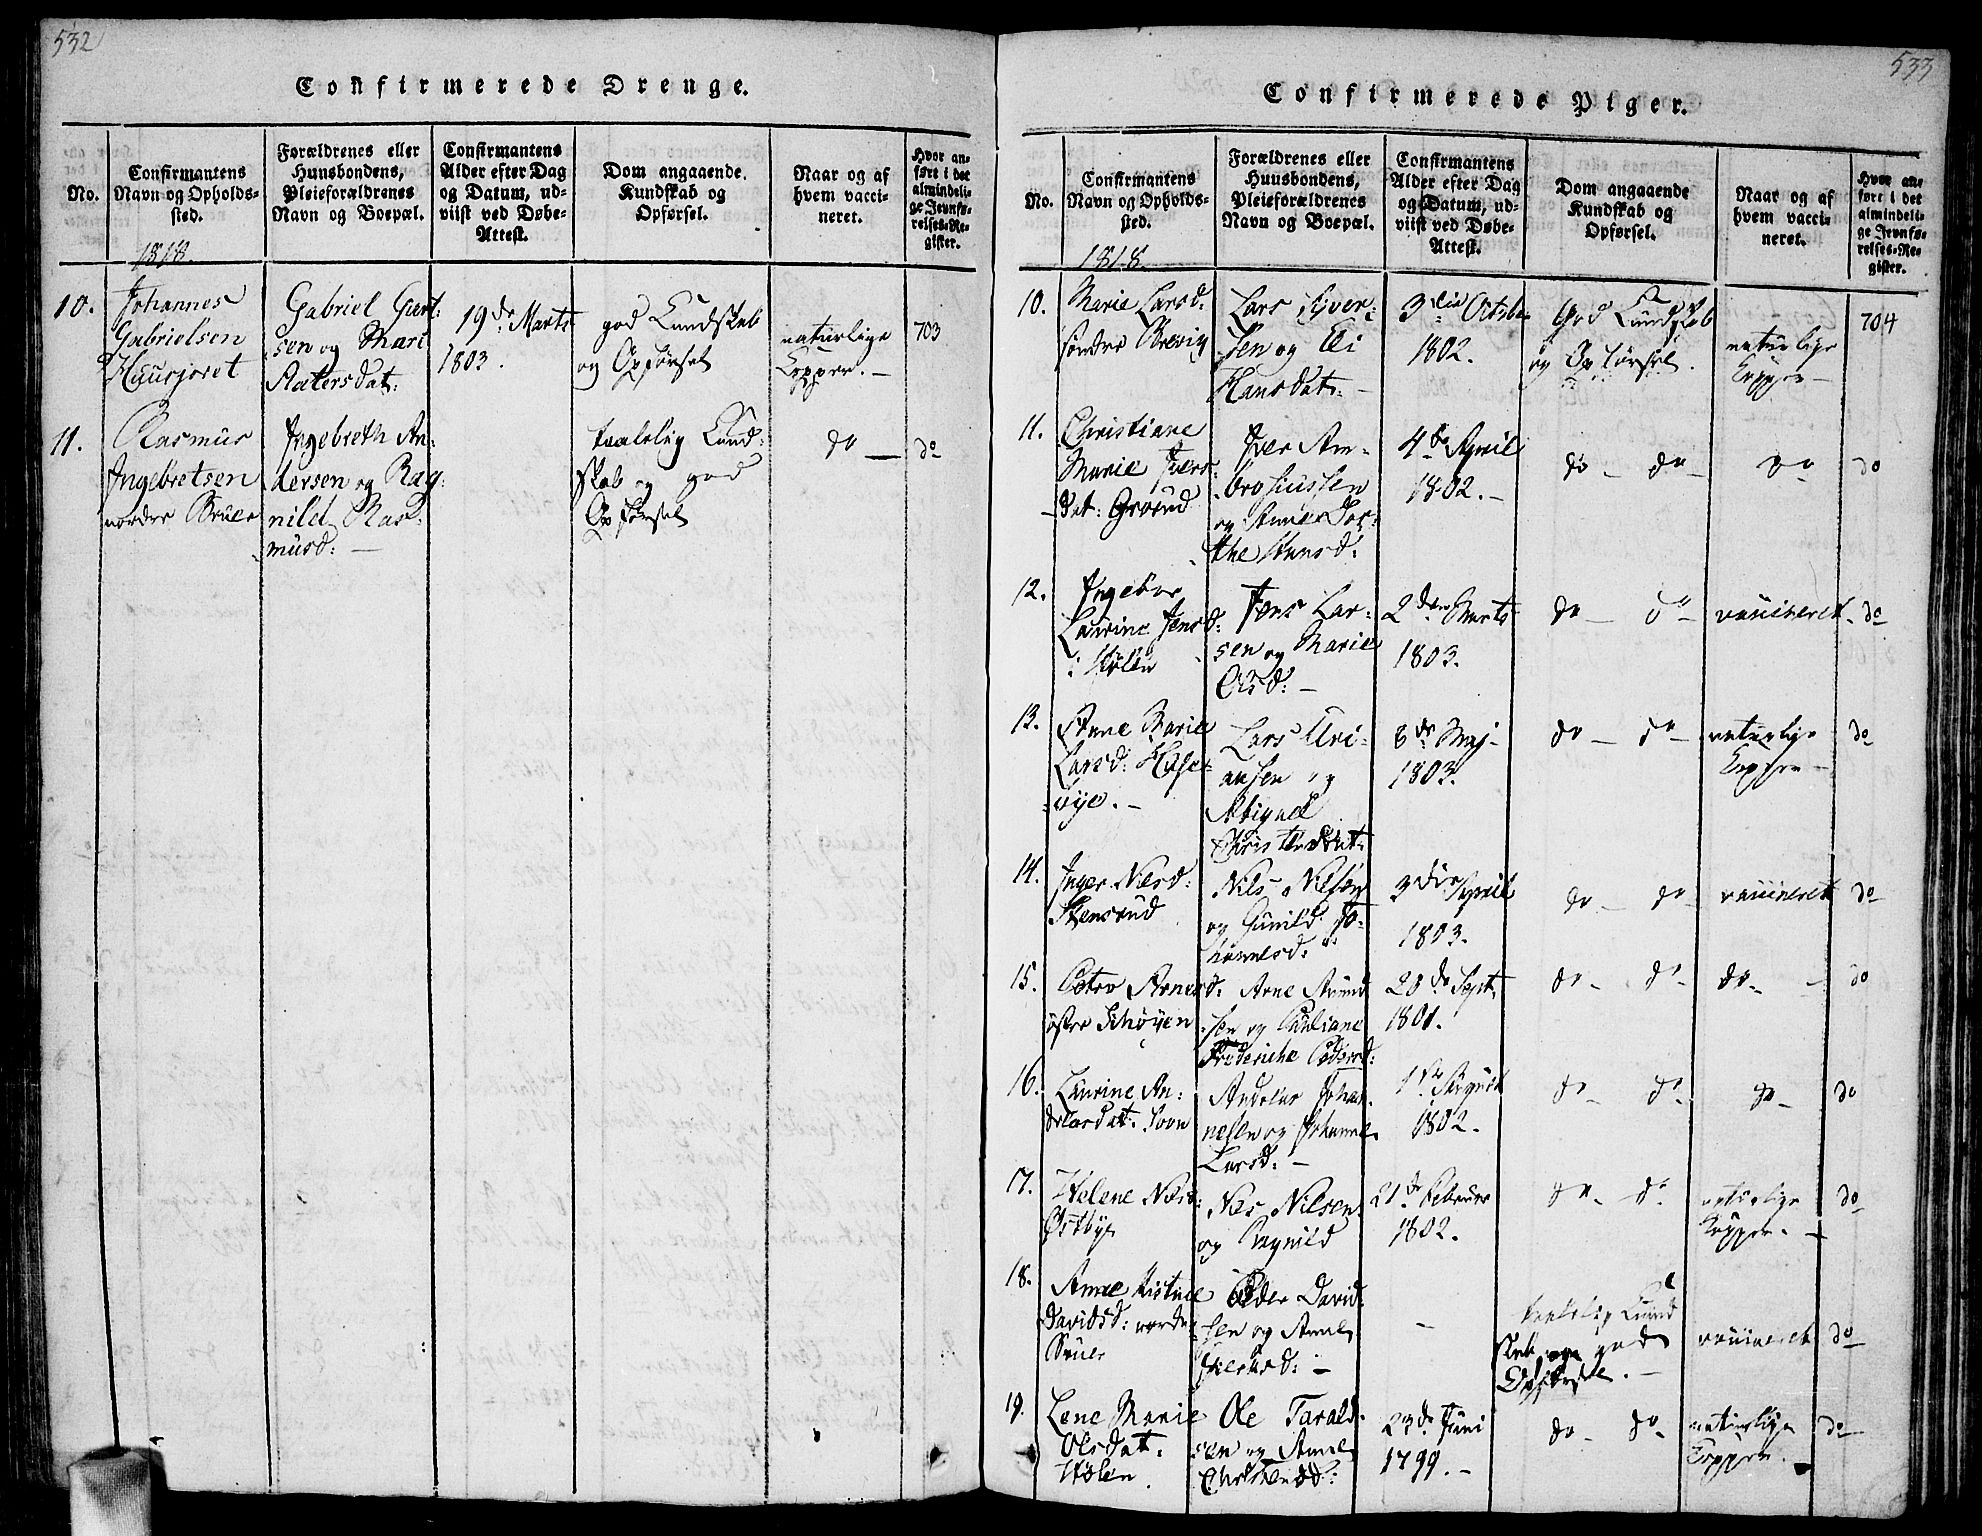 532
Confirmerede Drenge.
No.
Confirmantens
Navn og Opholds-
sted.
Forældrenes eller
Huusbondens,
Pleieforældrenes
Navn og Boepæl.
Confirmantens
Alder efter Dag
og Datum, ud-
viist ved Døbe-
Attest.
Dom angaaende
Kundskab og
Opførsel.
Naar og af
hvem vacci-
neret.
Hvor an-
ført i det
almindeli-
ge Jevnfø-
relses-Re-
gister.
1818.
10.
Johannes
Gabrielsen
Huusjoret
Gabriel Gurt-
sen og Mari
Pætersdat:
19de Marts
1803.
god Kundskab
og Opførsel
naturlige
Kopper. -
703
11.
Rasmus
Ingebretsen
nordre Bruer
Ingebreth An-
dersen og Rag-
nild Ras-
musd: -
taalelig Kund-
skab og god
Opførsel
do -
do
533
Confirmerede Piger.
No.
Confirmantens
Navn og Opholds-
sted.
Forældrenes eller
Huusbondens,
Pleieforældrenes
Navn og Boepæl.
Confirmantens
Alder efter Dag
og Datum, ud-
viist ved Døbe-
Attest.
Dom angaaende
Kundskab og
Opførsel.
Naar og af
hvem vacci-
neret.
Hvor an-
ført i det
almindeli-
ge Jevnfø-
relses-Re-
gister.
1818.
10.
Marie Larsd:
søndre Brevig
Lars Syver-
sen og Eli
Hansdat: -
3die Octob
1802.
God Kundskab
og Opførsel.
naturlige
Kopper -
704
11.
Christiane
Marie Ivers-
dat: Grosud
Iver Am-
brosiussen
og Anne Dor-
the Hansd:
4de April
1802. -
do - do -
do
do
12.
Ingebor
Laurine Jensd:
i Hølen
Jens Lar-
sen og Marie
Olsd: -
2den Marts
1803.
do - do -
vaccineret
do
13.
Anne Marie
Larsd:
Lars Uri-
ansen og
Abigael
Christensdat:
8de Maj
1803.
do - do -
naturlige
Kopper -
do
14.
Inger Nilsd:
Stensrud
Nils Nilsen
og Gunild Jo-
hannesd:
3die April
1803.
do - do -
vaccineret
do
15.
Petro Arnesd:
østre Schøyen
Arne Amund
sen og Juliane
Frederiche Pedersd:
20de Sept.
1801.
do - do -
do -
do
16.
Laurine An-
dreasdat: Sovn
Andreas Johan-
nesen og Johanne
Larsd: -
1ste August
1802.
do - do -
do -
do
17.
Helene Nilsd:
Østbye
Nils Nilsen
og Ragnild
21de Februar
1802.
do - do
naturlige
Kopper. -
do
18.
Anne Kistine
Davidsd: nordre
Bruer
Peder David-
sen og Anne
Iversd: -
-
taalelig Kund
skab og god
Opførsel. -
vaccineret
do
19.
Lene Marie
Olsdat:
Hølen
Ole Tarald-
sen og Anne
Christensd:
23de Juni
1799. -
do - do -
naturlige
Kopper.
do